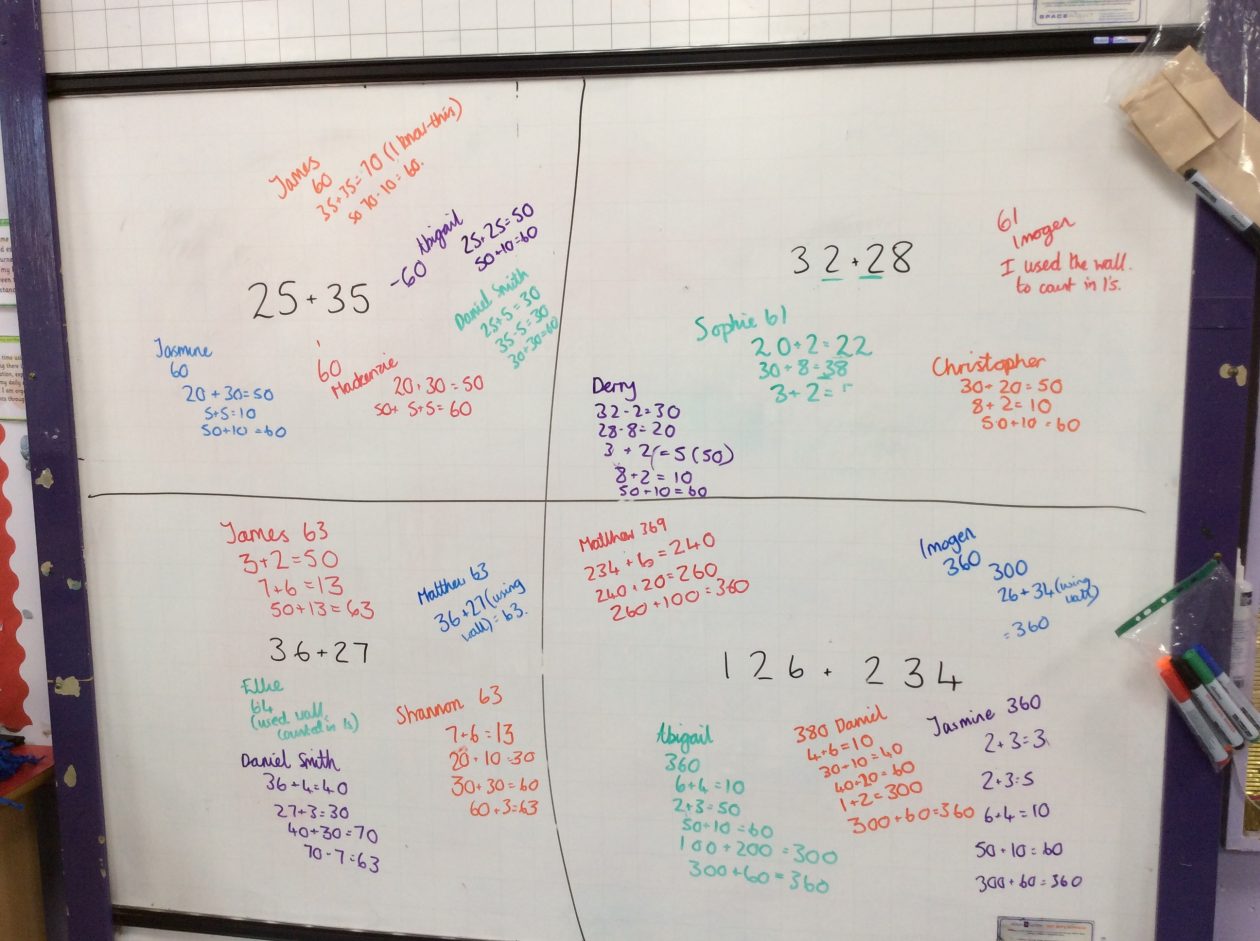 James
60
35+35=70 (I know this)
so 70-10=60.
Abigail
-60
25+25=50
50+10=60
25+35
Daniel Smith
25+5=30
35-5=30
30+30=60
Jasmine
60
20+30=50
5+5=10
50+10=60
60
Mackenzie
20+30=50
50+ 5+5=60
32+28
61
Imogen
I used the wall.
to count in 1's.
Sophie 61
20+2=22
30+8=38
3+2=
Christopher
30+20=50
8+2=10
50+10=60
Derry
32-2=30
28-8=20
3+2=5(50)
8+2=10
50+10=60
James 63
3+2=50
7+6=13
50+13=63
Matthew 63
36+27(using
wall)=63.
36+27
Ellie
64
(used wall,
counted in 1s)
Shannon 63
7+6=13
20+10=30
30+30=60
60+3=63
Daniel Smith
36+4=40
27+3=30
40+30=70
70-7=63
Matthew 369
234+6=240
240+20=260
260+100=360
Imogen
360
300
26+34(using
wall)
=360
126+234
Abigail
360
6+4=10
2+3=50
50+10=60
100+200=300
300+60=360
380 Daniel
4+6=10
30+10=40
40+20=60
1+2=300
300+60=360
Jasmine 360
2+3=3
2+3=5
6+4=10
50+10=60
300+60=360